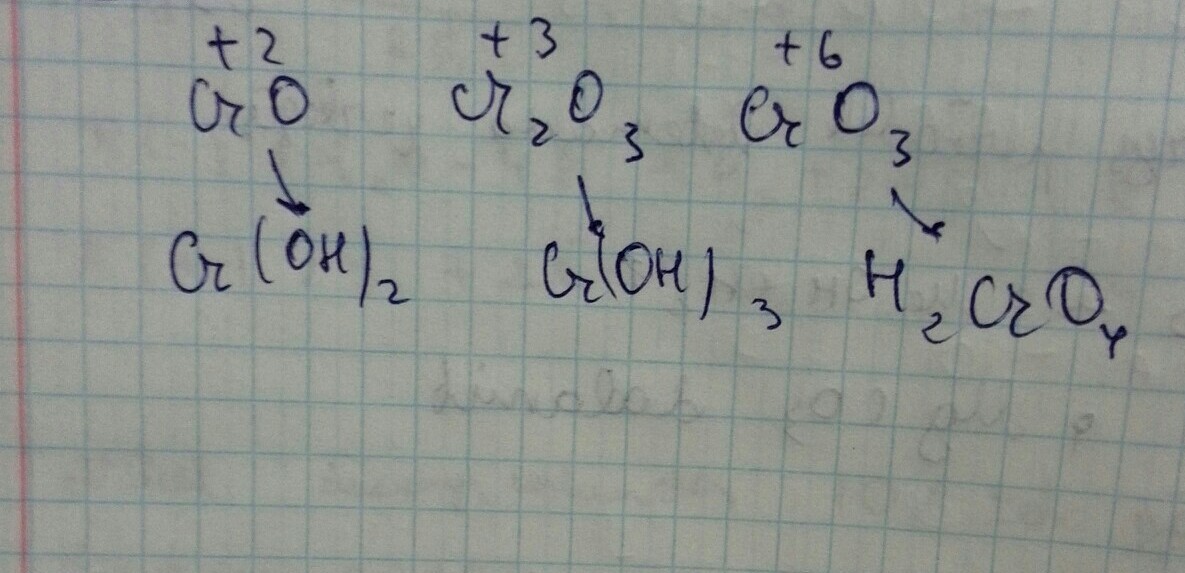 +2 +3 +6
CrO Cr₂O₃ CrO₃
Cr(OH)₂ Cr(OH)₃ H₂CrO₄